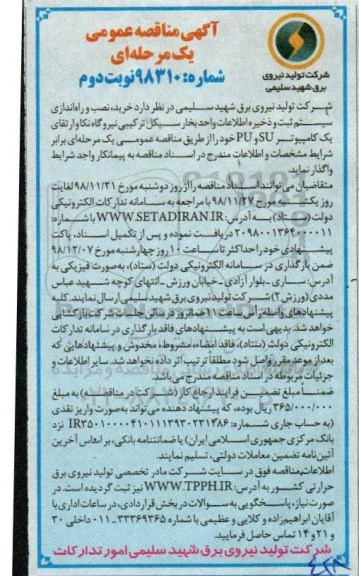 آگهی مناقصه عمومی
یک مرحله‌ای
شماره: ۹۸۳۱۰ نوبت دوم
شرکت تولید نیروی
برق شهید سلیمی
شرکت تولید نیروی برق شهید سلیمی در نظر دارد خرید، نصب و راه‌اندازی
سیستم ثبت و ذخیره اطلاعات واحد بخار سیکل ترکیبی نیروگاه نکا و ارتقای
یک کامپیوتر SU و PU خود را از طریق مناقصه عمومی یک مرحله‌ای برابر
شرایط مشخصات و اطلاعات مندرج در اسناد مناقصه به پیمانکار واجد شرایط
واگذار نماید.
متقاضیان می‌توانند اسناد مناقصه را از روز دوشنبه مورخ ۹۸/۱۱/۲۱ لغایت
روز یکشنبه مورخ ۹۸/۱۱/۲۷ با مراجعه به سامانه تدارکات الکترونیکی
دولت (ستاد) به آدرس: WWW.SETADIRAN.IR با شماره:
۲۰۹۸۰۰۱۳۶۴۰۰۰۰۱۱ دریافت نموده و پس از تکمیل اسناد، پاکت
پیشنهادی خود را حداکثر تا ساعت ۱۰ روز چهارشنبه مورخ ۹۸/۱۲/۰۷
ضمن بارگذاری در سامانه الکترونیکی دولت (ستاد)، به‌صورت فیزیکی به
آدرس: ساری ـ بلوار آزادی ـ خیابان ورزش ـ انتهای کوچه شهید عباس
مددی (ورزش ۲) شرکت تولید نیروی برق شهید سلیمی ارسال نمایند. کلیه
پیشنهادهای واصله رأس ساعت ۱۱ همانروز در سالن جلسات شرکت بازگشایی
خواهد شد. بدیهی است به پیشنهادهای فاقد بارگذاری در سامانه تدارکات
الکترونیکی دولت (ستاد)، فاقد امضاء، مشروط، مخدوش و پیشنهادهایی که
بعد از موعد مقرر واصل شود مطلقاً ترتیب اثر داده نخواهد شد. سایر اطلاعات و
جزئیات مربوطه در اسناد مناقصه مندرج می‌باشد.
ضمناً مبلغ تضمین فرآیند ارجاع کار (شرکت در مناقصه) به مبلغ
۳۶۵/۰۰۰/۰۰۰ ریال بوده، که پیشنهاد دهنده می‌تواند به‌صورت واریز نقدی
(به حساب جاری شماره: نزد
بانک مرکزی جمهوری اسلامی ایران) یا ضمانتنامه بانکی، براساس آخرین
آئین‌نامه تضمین معاملات دولتی، تسلیم نمایند.
اطلاعات مناقصه فوق در سایت شرکت مادر تخصصی تولید نیروی برق
حرارتی کشور به آدرس: WWW.TPPH.IR نیز ثبت گردیده است. در
صورت نیاز، پاسخگویی به سوالات در بخش قراردادی، در ساعات اداری با
آقایان ابراهیم‌زاده و کلایی و عظیمی با شماره ۳۳۳۶۹۳۶۵-۰۱۱ داخلی ۳۰
و ۲۱ و ۱۴ تماس حاصل فرمایید.
شرکت تولید نیروی برق شهید سلیمی امور تدارکات